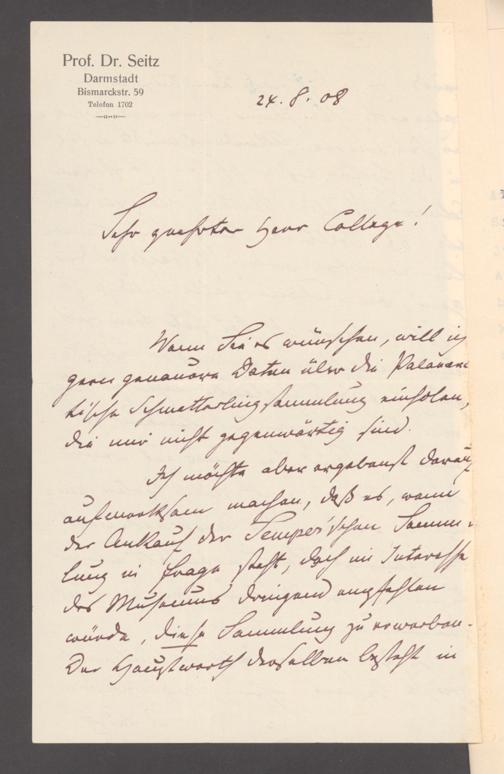 Prof. Dr. Seitz
Darmstadt
Bismarckstr. 59
Telefon 1702
24. 8. 08
Sehr geehrter Herr College!
Wenn Sie es wünschen, will ich
gern genauere Daten über die Palaeark-
tische Schmetterlingssammlung einholen,
die mir nicht gegenwärtig sind.
Ich möchte aber ergebenst darauf
aufmerksam machen, daß es, wenn
der Ankauf der Semper'schen Samm-
lung in Frage steht, doch im Interesse
des Museums dringend empfehlen
würde, diese Sammlung zu erwerben.
Der Hauptwerth derselben besteht in